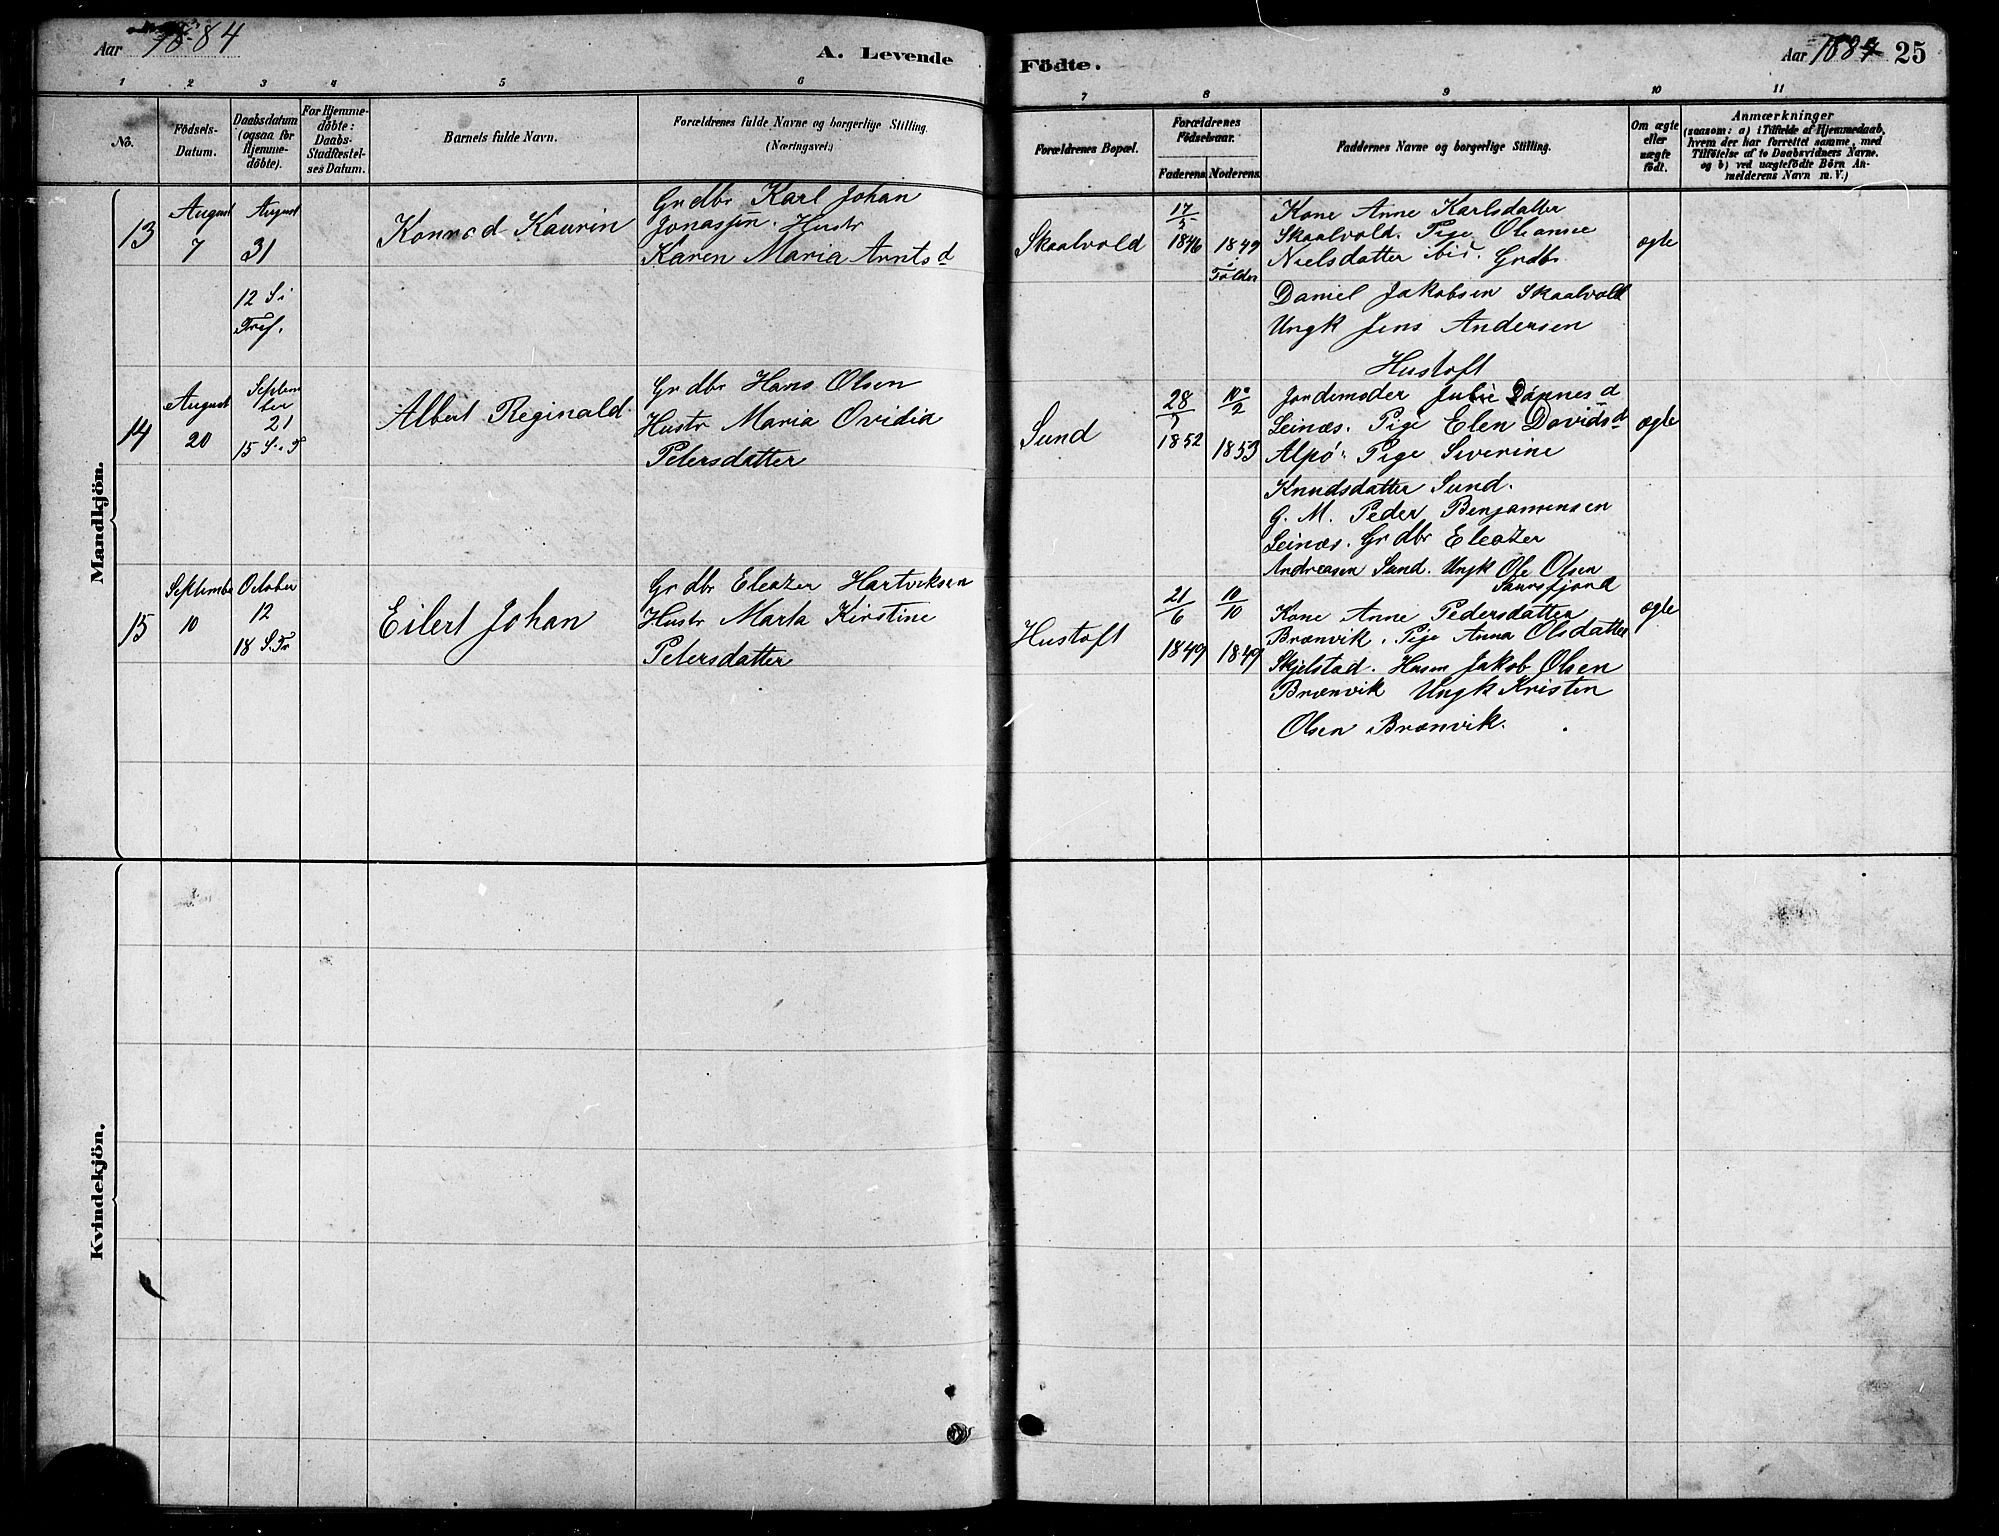 Aar 1884
A. Levende
Födte.
Aar 1884 25
1 2 3 4 5 6 7 8 9 10 11
No.
Födsels-
Datum.
Daabsdatum
(ogsaa for
Hjemme-
döbte).
For Hjemme-
döbte:
Daabs-
Stadfestel-
ses Datum.
Barnets fulde Navn.
Forældrenes fulde Navne og borgerlige Stilling.
(Næringsvei.)
Forældrenes Bopæl.
Forældrenes
Födselsaar.
Faderens Moderens
Faddernes Navne og borgerlige Stilling.
Om ægte
eller
uægte
födt.
Anmærkninger
(saasom: a) i Tilfælde af Hjemmedaab,
hvem der har forrettet samme, med
Tilföielse af to Daabsvidners Navne.
og b) ved uægtefödte Börn An-
melderens Navn m. V.)
Mandkjön.
13
August
7
August
31
12 S i
Tref.
Konrad Kaurin
Grdbr Karl Johan
Jonassen. Hustr
Karen Maria Arntsd
Skaalvold
17/5
1846
1849
i
Folden
Kone Anne Karlsdatter
Skaalvold. Pige Oleanse
Nielsdatter ibid. Grdbr
Daniel Jakobsen Skaalvold
Ungk Jens Andersen
Hustoft
ægte
14
August
20
Septem
ber
21
15 S. i T
Albert Reginald
Grdbr Hans Olsen
Hustr Maria Ovidia
Petersdatter
Sund
28/7
1852
10/2
1853
Jordemoder Julie Dannesd
Leinæs. Pige Elen Davidsd
Alpø. Pige Severine
Knudsdatter Sund.
G. M. Peder Benjaminsen
Leinæs. Grdbr Eleazer
Andreasen Sund. Ungk Ole Olsen
Saursfjord
ægte
15
Septembr
10
October
12
18 S. Tr
Eilert Johan
Grdbr Eleazer Hartviksen
Hustr Marta Kirstine
Petersdatter
Hustoft
21/6
1849
10/10
1849
Kone Anne Pedersdatter
Brænvik. Pige Anna Olsdatter
Skjelstad. Husm Jakob Olsen
Brænvik Ungk Kristen
Olsen Brænvik.
ægte
Kvindekjön.